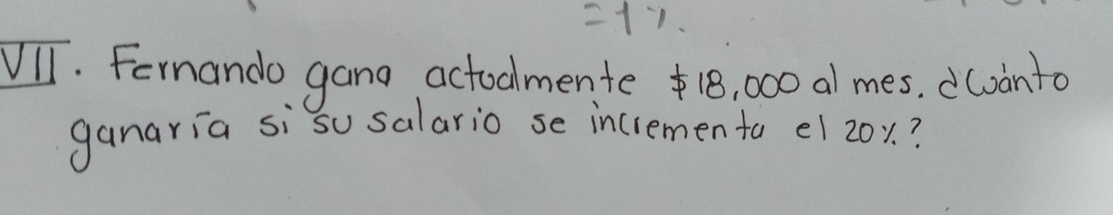 =1%.
VII. Fernando gana actualmente $18,000 al mes. ¿Cuánto
ganaría si su salario se incrementa el 20%?